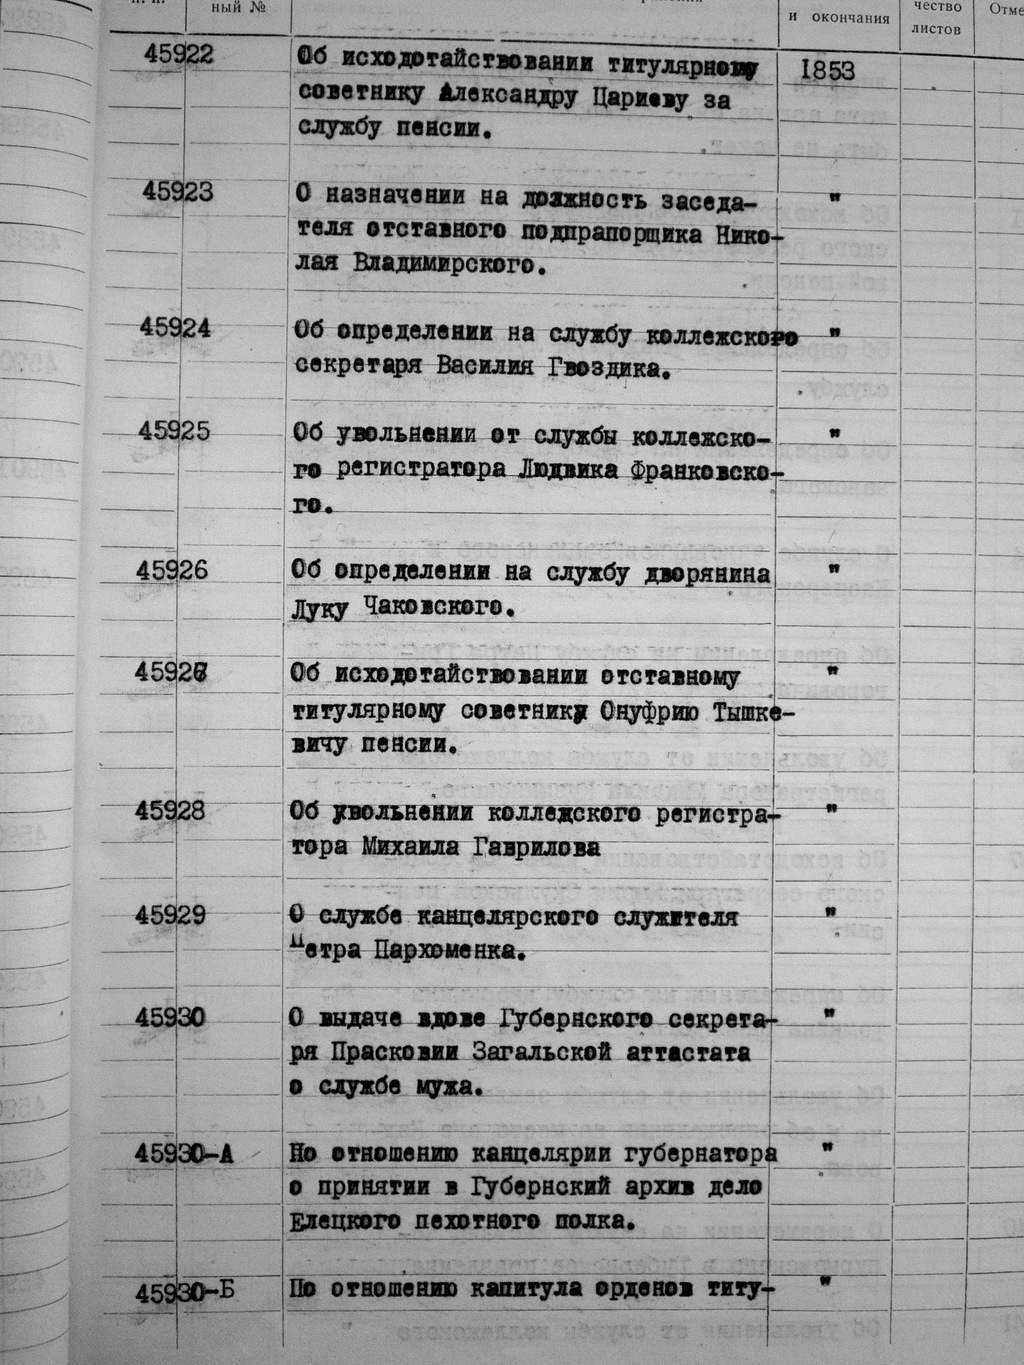 ный №
и окончания
чество
листов
Отме
45922 Об исходотайствовании титулярному 1853
советнику Александру Цариеву за
службу пенсии.
45923 О назначении на должность заседа- "
теля отставного подпрапорщика Нико-
лая Владимирского.
45924 Об определении на службу коллежского "
секретаря Василия Гвоздика.
45925 Об увольнении от службы коллежско- "
го регистратора Людвика Франковско-
го.
45926 Об определении на службу дворянина "
Луку Чаковского.
45927 Об исходотайствовании отставному "
титулярному советнику Онуфрию Тышке-
вичу пенсии.
45928 Об увольнении коллежского регистра- "
тора Михаила Гаврилова
45929 О службе канцелярского служителя "
Петра Пархоменка.
45930 О выдаче вдове Губернского секрета- "
ря Прасковии Загальской аттестата
о службе мужа.
45930-А По отношению канцелярии губернатора "
о принятии в Губернский архив дело
Елецкого пехотного полка.
45930-Б По отношению капитула орденов титу- "